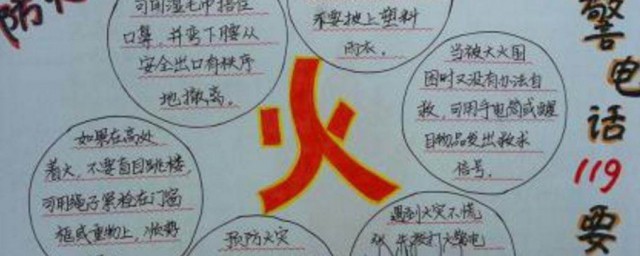 防
可用湿毛巾捂住
口鼻，并弯下腰从
安全出口有秩序
地撤离。
不要披上塑料
雨衣。
当被大火围
困时又没有办法自
救，可用手电筒或醒
目物品发出救求
信号。
火
如果在高处
着火，不要盲目跳楼，
可用绳子累栓在门窗
框或重物上，顺势
预防火灾
遇到火灾不慌
打火警电
警电话119要